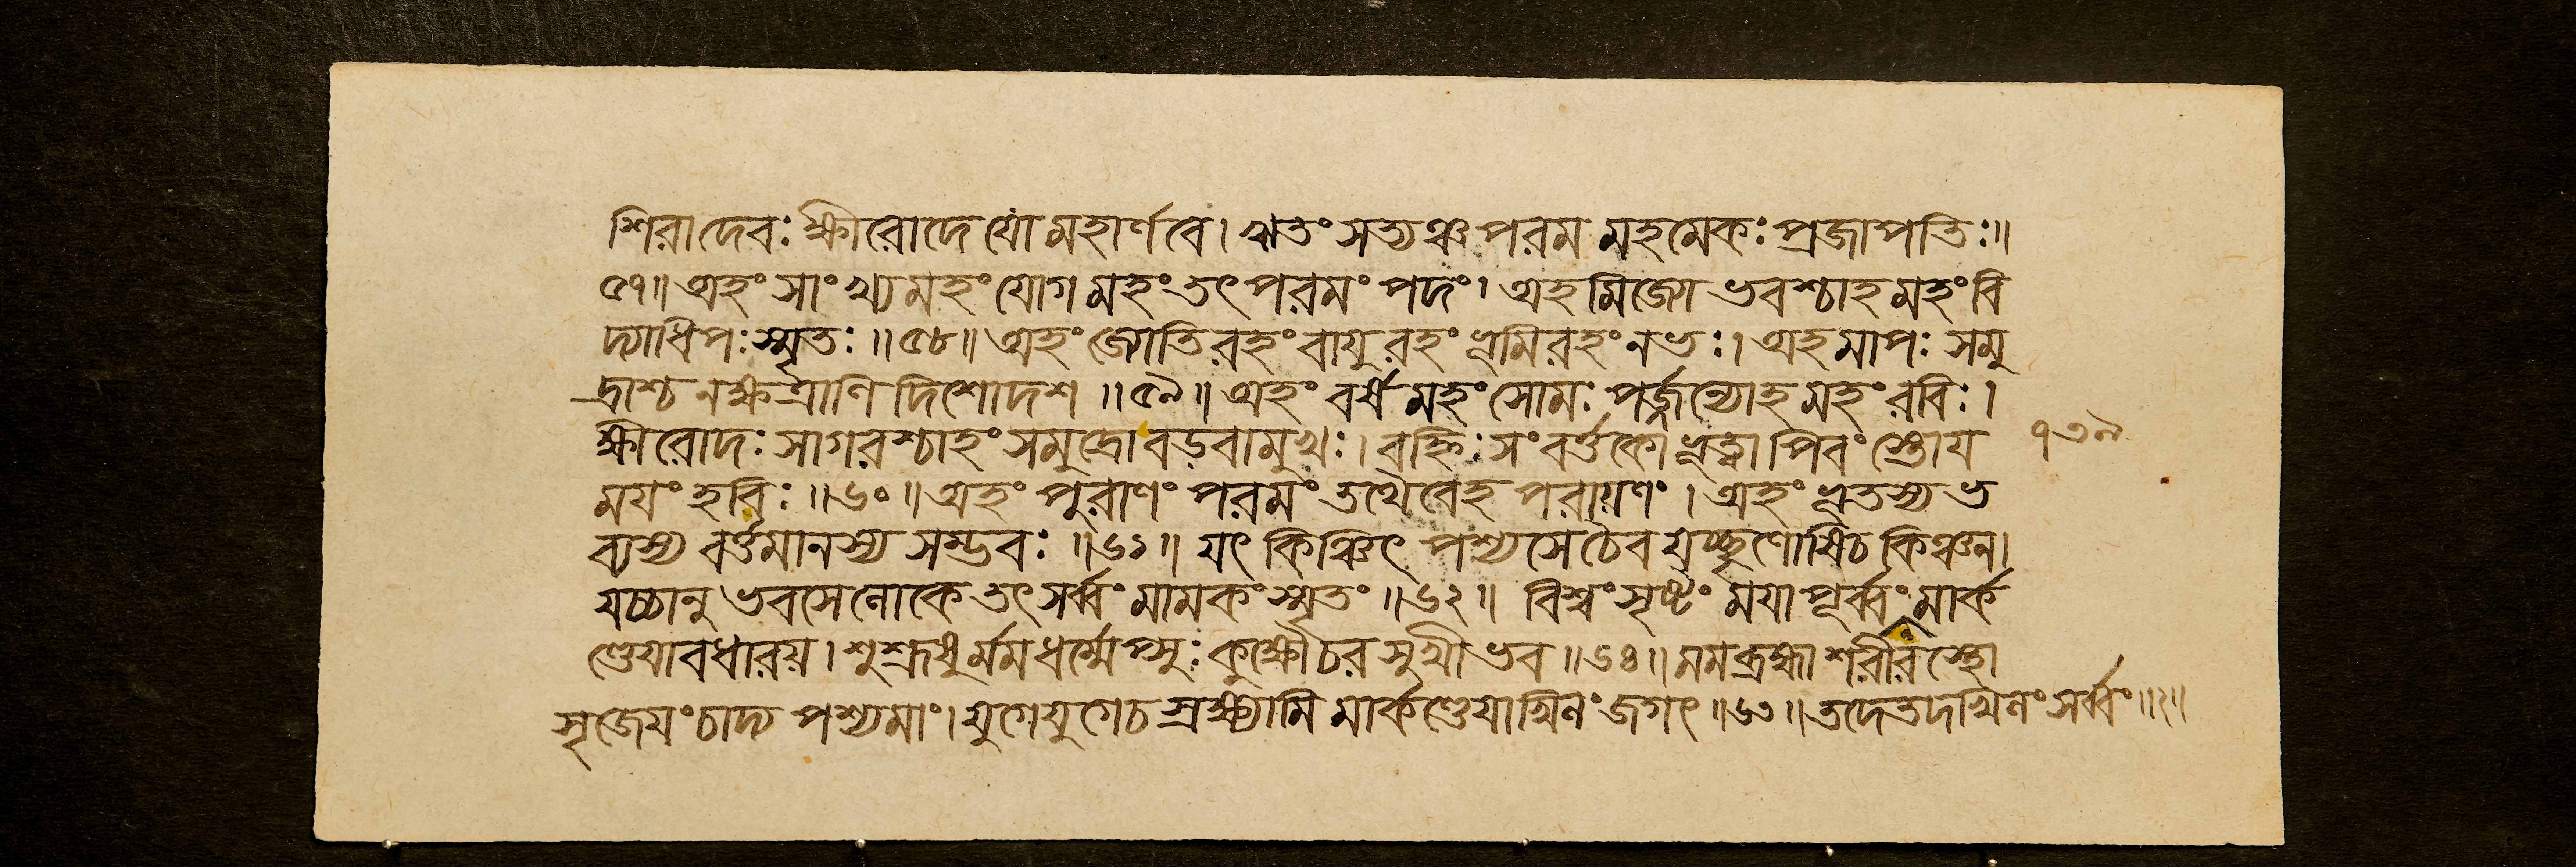 শিরাদেবঃ ক্ষীরোদেযো মহার্ণবে। ঋতং সত্যঞ্চ পরম মহমেকঃ প্রজাপতিঃ॥
৫৭॥ অহং সাংখ্যমহং যোগ মহং তৎ পরমং পদং। অহমিজ্যো ভবশ্চাহ মহং বি
দ্যাধিপঃ স্মৃতঃ॥৫৮॥ অহং জ্যোতিরহং বায়ু রহং ভূমিরহং নভঃ। অহমাপঃ সমু
দ্রাশ্চ নক্ষত্রাণি দিশোদশ॥৫৯॥ অহং বর্ষ মহং সোমঃ পর্জ্জন্যোহ মহং রবিঃ।
ক্ষীরোদঃ সাগরশ্চাহং সমুদ্রো বড়বামুখঃ। বহ্নিঃ সংবর্ত্তকো ভূত্বা পিবংস্তোয
১৩৯
ময়ং হবিঃ॥৬০॥ অহং পুরাণং পরমং তথৈবেহ পরায়ণং। অহং ভূতস্য ভ
ব্যস্য বর্ত্তমানস্য সম্ভবঃ॥৬১॥ যৎ কিঞ্চিৎ পশ্যসে চৈব যচ্ছৃণোষিচ কিঞ্চন।
যচ্চানু ভবসে লোকে তৎ সর্ব্বং মামকং স্মৃতং॥৬২॥ বিশ্বং সৃষ্টং ময়া পূর্ব্বং মার্ক
ণ্ডেয়াবধারয়। শুশ্রূষুর্মম ধর্ম্মেপ্সুঃ কুক্ষৌচর সুখী ভব॥৬৪॥ মম ব্রহ্মা শরীরস্থো
সৃজেয়ং চাদ্য পশ্যমাং। যুগেযুগেচ স্রক্ষ্যামি মার্কণ্ডেয়াখিলং জগৎ॥৬৩॥ তদেতদখিলং সর্ব্বং॥২॥